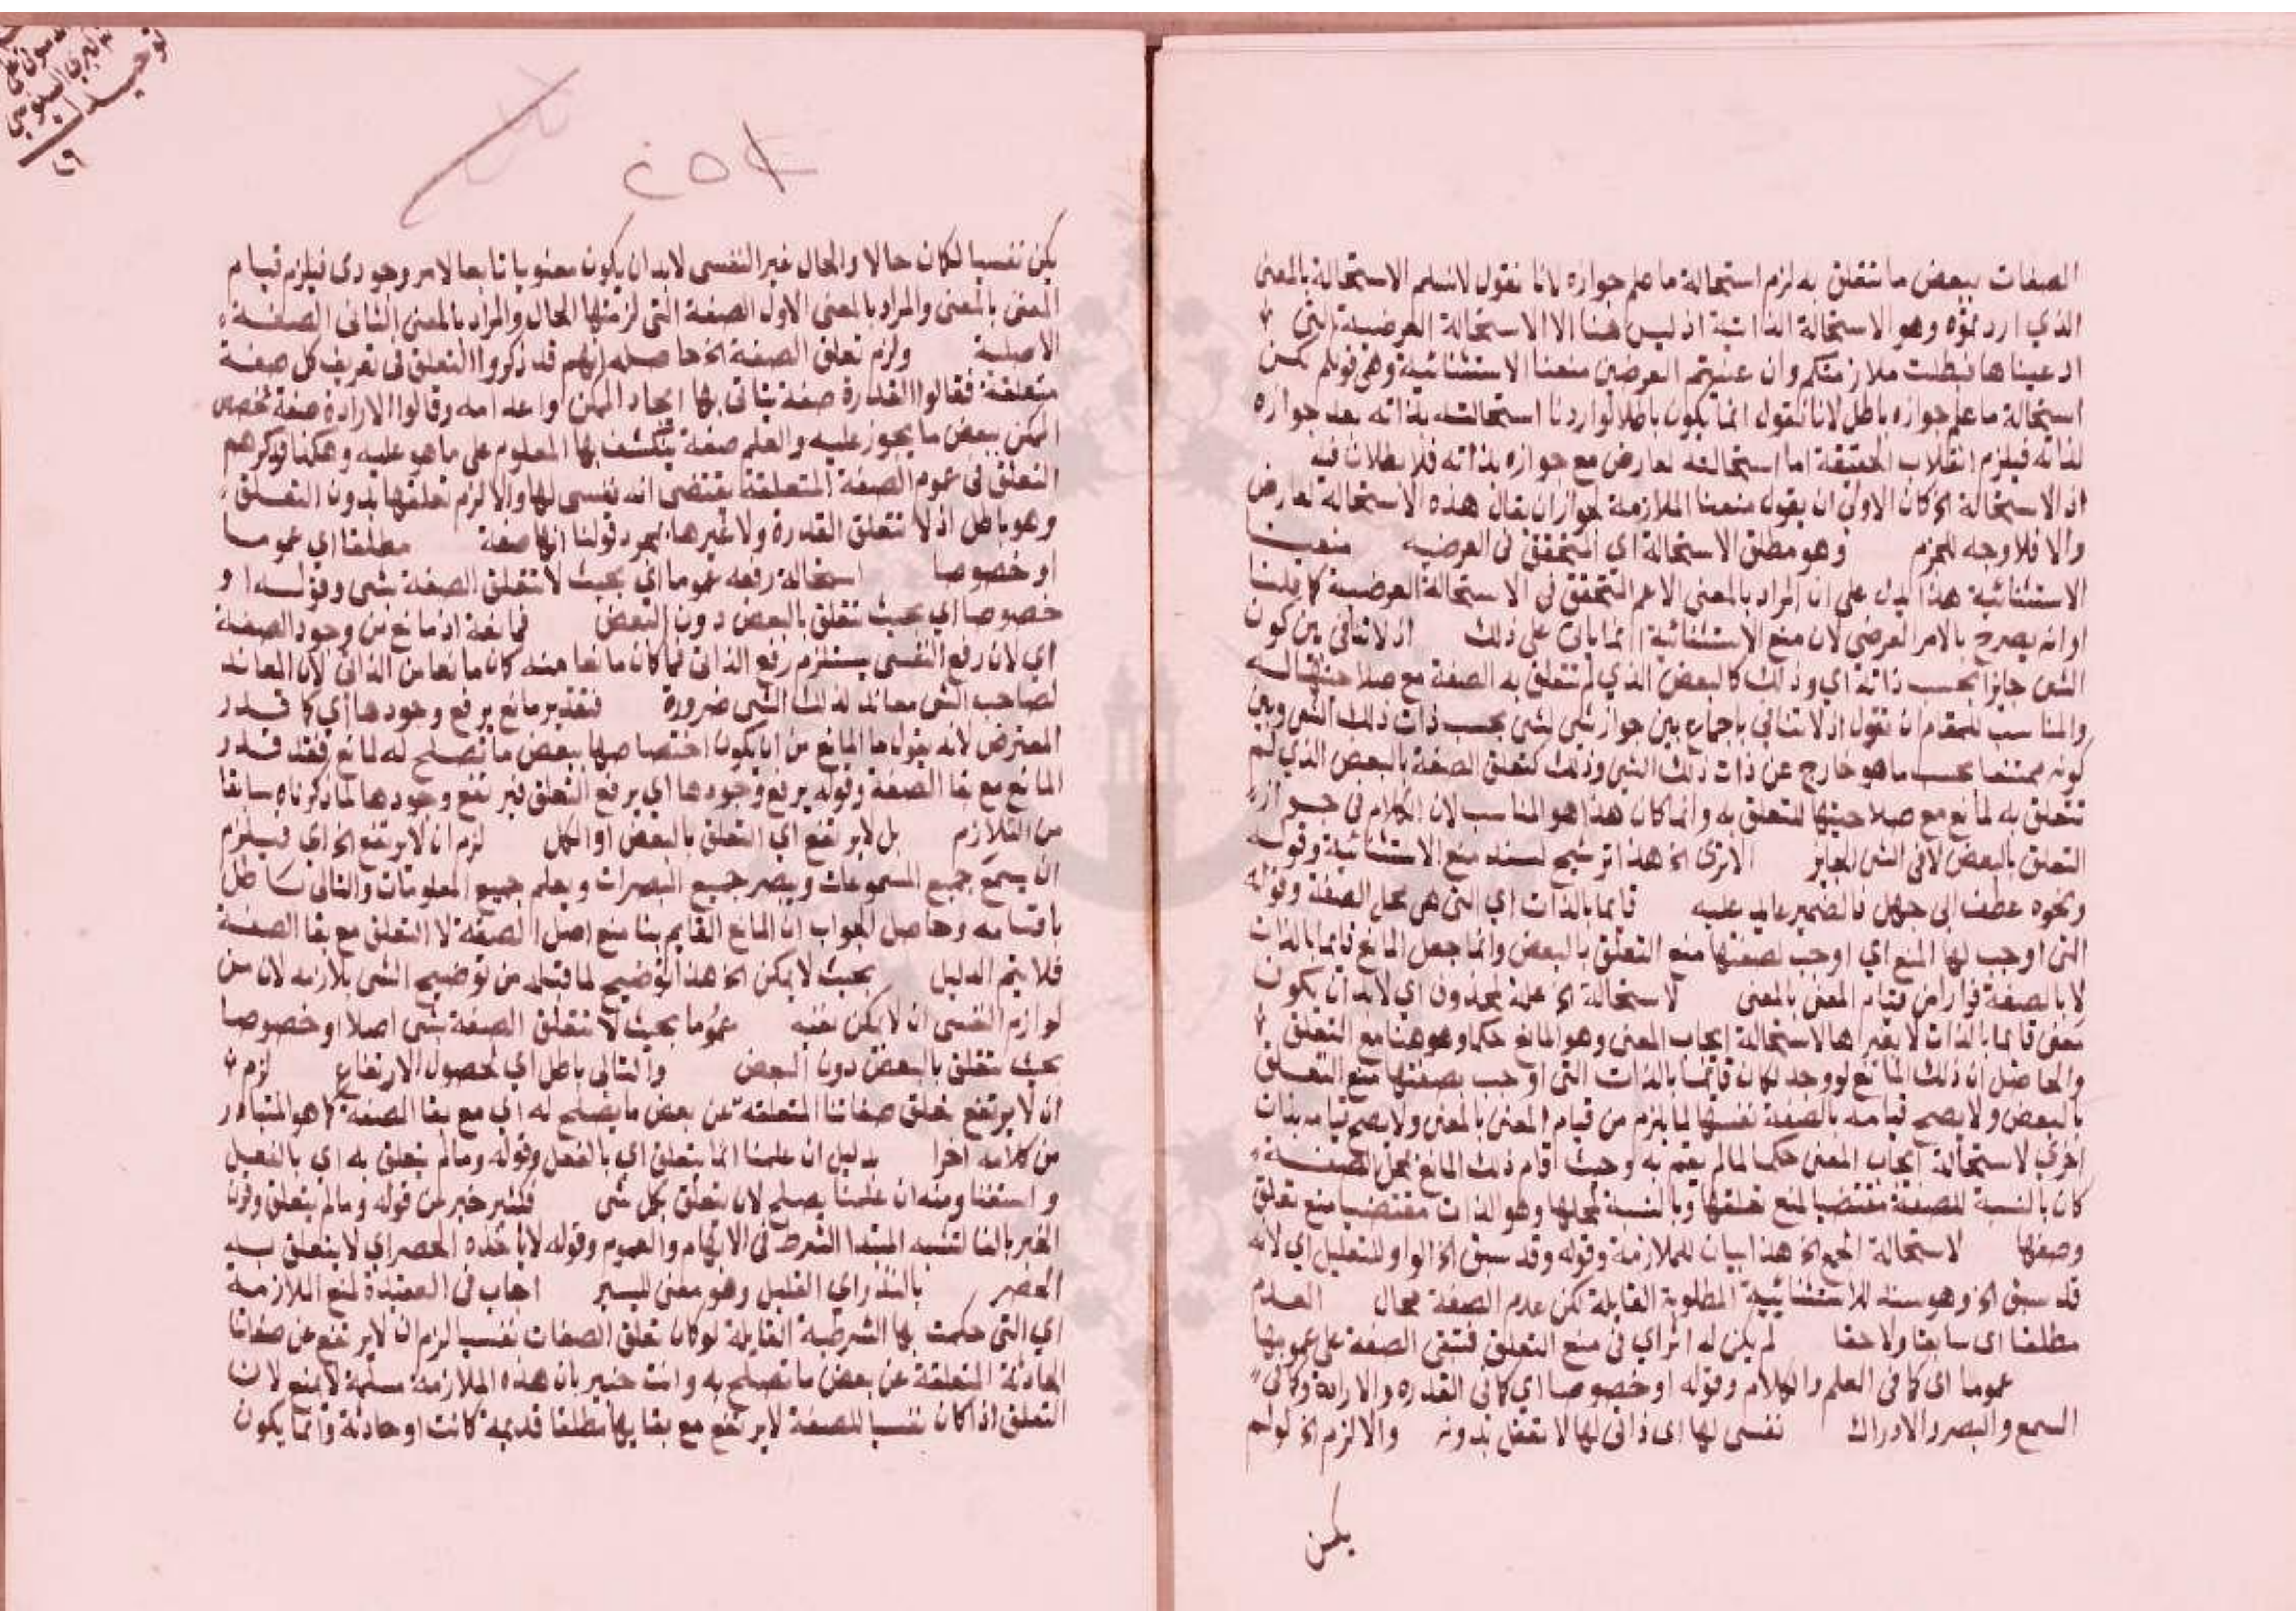 الصفات ببعض ما تتعلق به لزم استحالة ما علم جوازه لانا نقول لا نسلم الاستحالة بالمعنى
الذي اردتموه وهو الاستحالة الذاتية اذ ليس هنا الا الاستحالة العرضية التي
ادعيناها فبطلت ملازمتكم وان عنيتم العرضى منعنا الاستثنائية وهي قولكم لكن
استحالة ما علم جوازه باطل لانا نقول انما يكون باطلا لو اردنا استحالته بذاته بعد جوازه
لذاته فيلزم انقلاب الحقيقة اما استحالته لعارض مع جوازه بذاته فلا بطلان فيه
اذ الاستحالة الخ كان الاولى ان يقول منعنا الملازمة لجواز ان يقال هذه الاستحالة لعارض
والا فلا وجه للجزم وهو مطلق الاستحالة اي المتحقق في العرضية منعنا
الاستثنائية هذا يدل على ان المراد بالمعنى الاعم المتحقق في الاستحالة العرضية كما قلنا
او انه يصرح بالامر العرضي لان منع الاستثنائية انما ياتى على ذلك اذ لا تنافى بين كون
الشى جايزا بحسب ذاته اي وذلك كالبعض الذي لم تتعلق به الصفة مع صلاحيتها له
والمناسب للمقام ان نقول اذ لا تنافى باجماع بين جواز شى لشى بحسب ذات ذلك الشى وبين
كونه ممتنعا بحسب ما هو خارج عن ذات ذلك الشى وذلك كتعلق الصفة بالبعض الذي لم
تتعلق به لمانع مع صلاحيتها للتعلق به وانما كان هذا هو المناسب لان الكلام في جواز
التعلق بالبعض لا في الشى الجايز الا ترى الخ هذا ترشيح لسند منع الاستثنائية وقوله
ونحوه عطف الى جهل فالضمير عايد عليه قايما بالذات اي التى هى محل الصفة وقوله
التى اوجب لها المنع اي اوجب لصفتها منع التعلق بالبعض وانما جعل المانع قايما بالذات
لا بالصفة فرارا من قيام المعنى بالمعنى لاستحالة الخ علة لمحذوف اي لا بد ان يكون
معنى قايما بالذات لا بغيرها لاستحالة ايجاب المعنى وهو المانع حكما وهو هنا منع التعلق
والحاصل ان ذلك المانع لو وجد لكان قايما بالذات التى اوجب لصفتها منع التعلق
بالبعض ولا يصح قيامه بالصفة نفسها لما يلزم من قيام المعنى بالمعنى ولا يصح قيامه بذات
اخرى لاستحالة ايجاب المعنى حكما لما لم يقم به وحيث اقام ذلك المانع بمحل الصفة
كان بالنسبة للصفة مقتضيا لمنع تعلقها وبالنسبة لمحلها وهو الذات مقتضيا منع تعلق
وصفها لاستحالة الجمع الخ هذا بيان للملازمة وقوله وقد سبق الخ الواو للتعليل اي لانه
قد سبق الخ وهو سند للاستثنائية المطلوبة القايلة لكن عدم الصفة محال العدم
مطلقا اى سابقا ولاحقا لم يكن له اثر اي في منع التعلق فتبقى الصفة على عمومها
عموما اى كما فى العلم والكلام وقوله او خصوصا اي كما فى القدرة والارادة وكما فى
السمع والبصر والادراك نفسى لها اى ذاتى لها لا تعقل بدونه والا لزم الخ لو لم
يكن
يكن نفسيا لكان حالا والحال غير النفسى لا بد ان يكون معنويا تابعا لامر وجودى فيلزم قيام
المعنى بالمعنى والمراد بالمعنى الاول الصفة التى لزمتها الحال والمراد بالمعنى الثانى الصفة
الاصلية ولزم تعلق الصفة الخ حاصله انهم قد ذكروا التعلق فى تعريف كل صفة
متعلقة فقالوا القدرة صفة يتاتى بها ايجاد الممكن واعدامه وقالوا الارادة صفة تخصص
الممكن ببعض ما يجوز عليه والعلم صفة ينكشف بها المعلوم على ما هو عليه وهكذا فذكرهم
التعلق فى عموم الصفة المتعلقة يقتضى انه نفسى لها والا لزم تعلقها بدون التعلق
وهو باطل اذ لا تتعلق القدرة ولا غيرها بمجرد قولنا انها صفة مطلقا اي عموما
او خصوصا استحالة رفعه عموما اي بحيث لا تتعلق الصفة بشى وقوله او
خصوصا اي بحيث تتعلق بالبعض دون البعض فمانعة اذ مانع من وجود الصفة
اي لان رفع النفسى يستلزم رفع الذات فما كان مانعا منه كان مانعا من الذات لان المعاند
لصاحب الشى معاند لذلك الشى ضرورة فتقدير مانع يرفع وجودها اي كما قدر
المعترض لانه يقول ما المانع من ان يكون اختصاصها ببعض ما تصلح له لمانع فقد قدر
المانع مع بقا الصفة وقوله يرفع وجودها اي يرفع التعلق فيرتفع وجودها لما ذكرناه سابقا
من التلازم بل لا يرتفع اي التعلق بالبعض او الكل لزم ان لا يرتفع الخ اى فيلزم
ان يسمع جميع المسموعات ويبصر جميع المبصرات ويعلم جميع المعلومات والتالى باطل
باقسامه وحاصل الجواب ان المانع القايم بنا منع اصل الصفة لا التعلق مع بقا الصفة
فلا يتم الدليل بحيث لا يمكن الخ هذا توضيح لما قبله من توضيح الشى بلازمه لان من
لوازم النفسى ان لا يمكن نفيه عموما بحيث لا تتعلق الصفة بشى اصلا او خصوصا
بحيث تتعلق بالبعض دون البعض والتالى باطل اي لحصول الارتفاع لزم
ان لا يرتفع تعلق صفاتنا المتعلقة عن بعض ما يصلح له اي مع بقا الصفة كما هو المتبادر
من كلامه اخرا بدليل ان علمنا انما يتعلق اي بالفعل وقوله وما لم يتعلق به اي بالفعل
واستفدنا ومنه ان علمنا يصلح لان يتعلق بكل شى فكثير خبر عن قوله وما لم يتعلق وقرن
الخبر بالفا لشبه المبتدا الشرط فى الابهام والعموم وقوله لا ياخذه الحصر اي لا يتعلق به
الحصر بالنذر اي القليل وهو معنى اليسير اجاب فى العقيدة لمنع الملازمة
اي التى حكمت بها الشرطية القايلة لو كان تعلق الصفات نفسيا لزم ان لا يرتفع عن صفاتنا
الحادثة المتعلقة عن بعض ما تصلح به وانت خبير بان هذه الملازمة مسلمة لا تمنع لان
التعلق اذا كان نفسيا للصفة لا يرتفع مع بقايها مطلقا قديمة كانت او حادثة وانما يكون